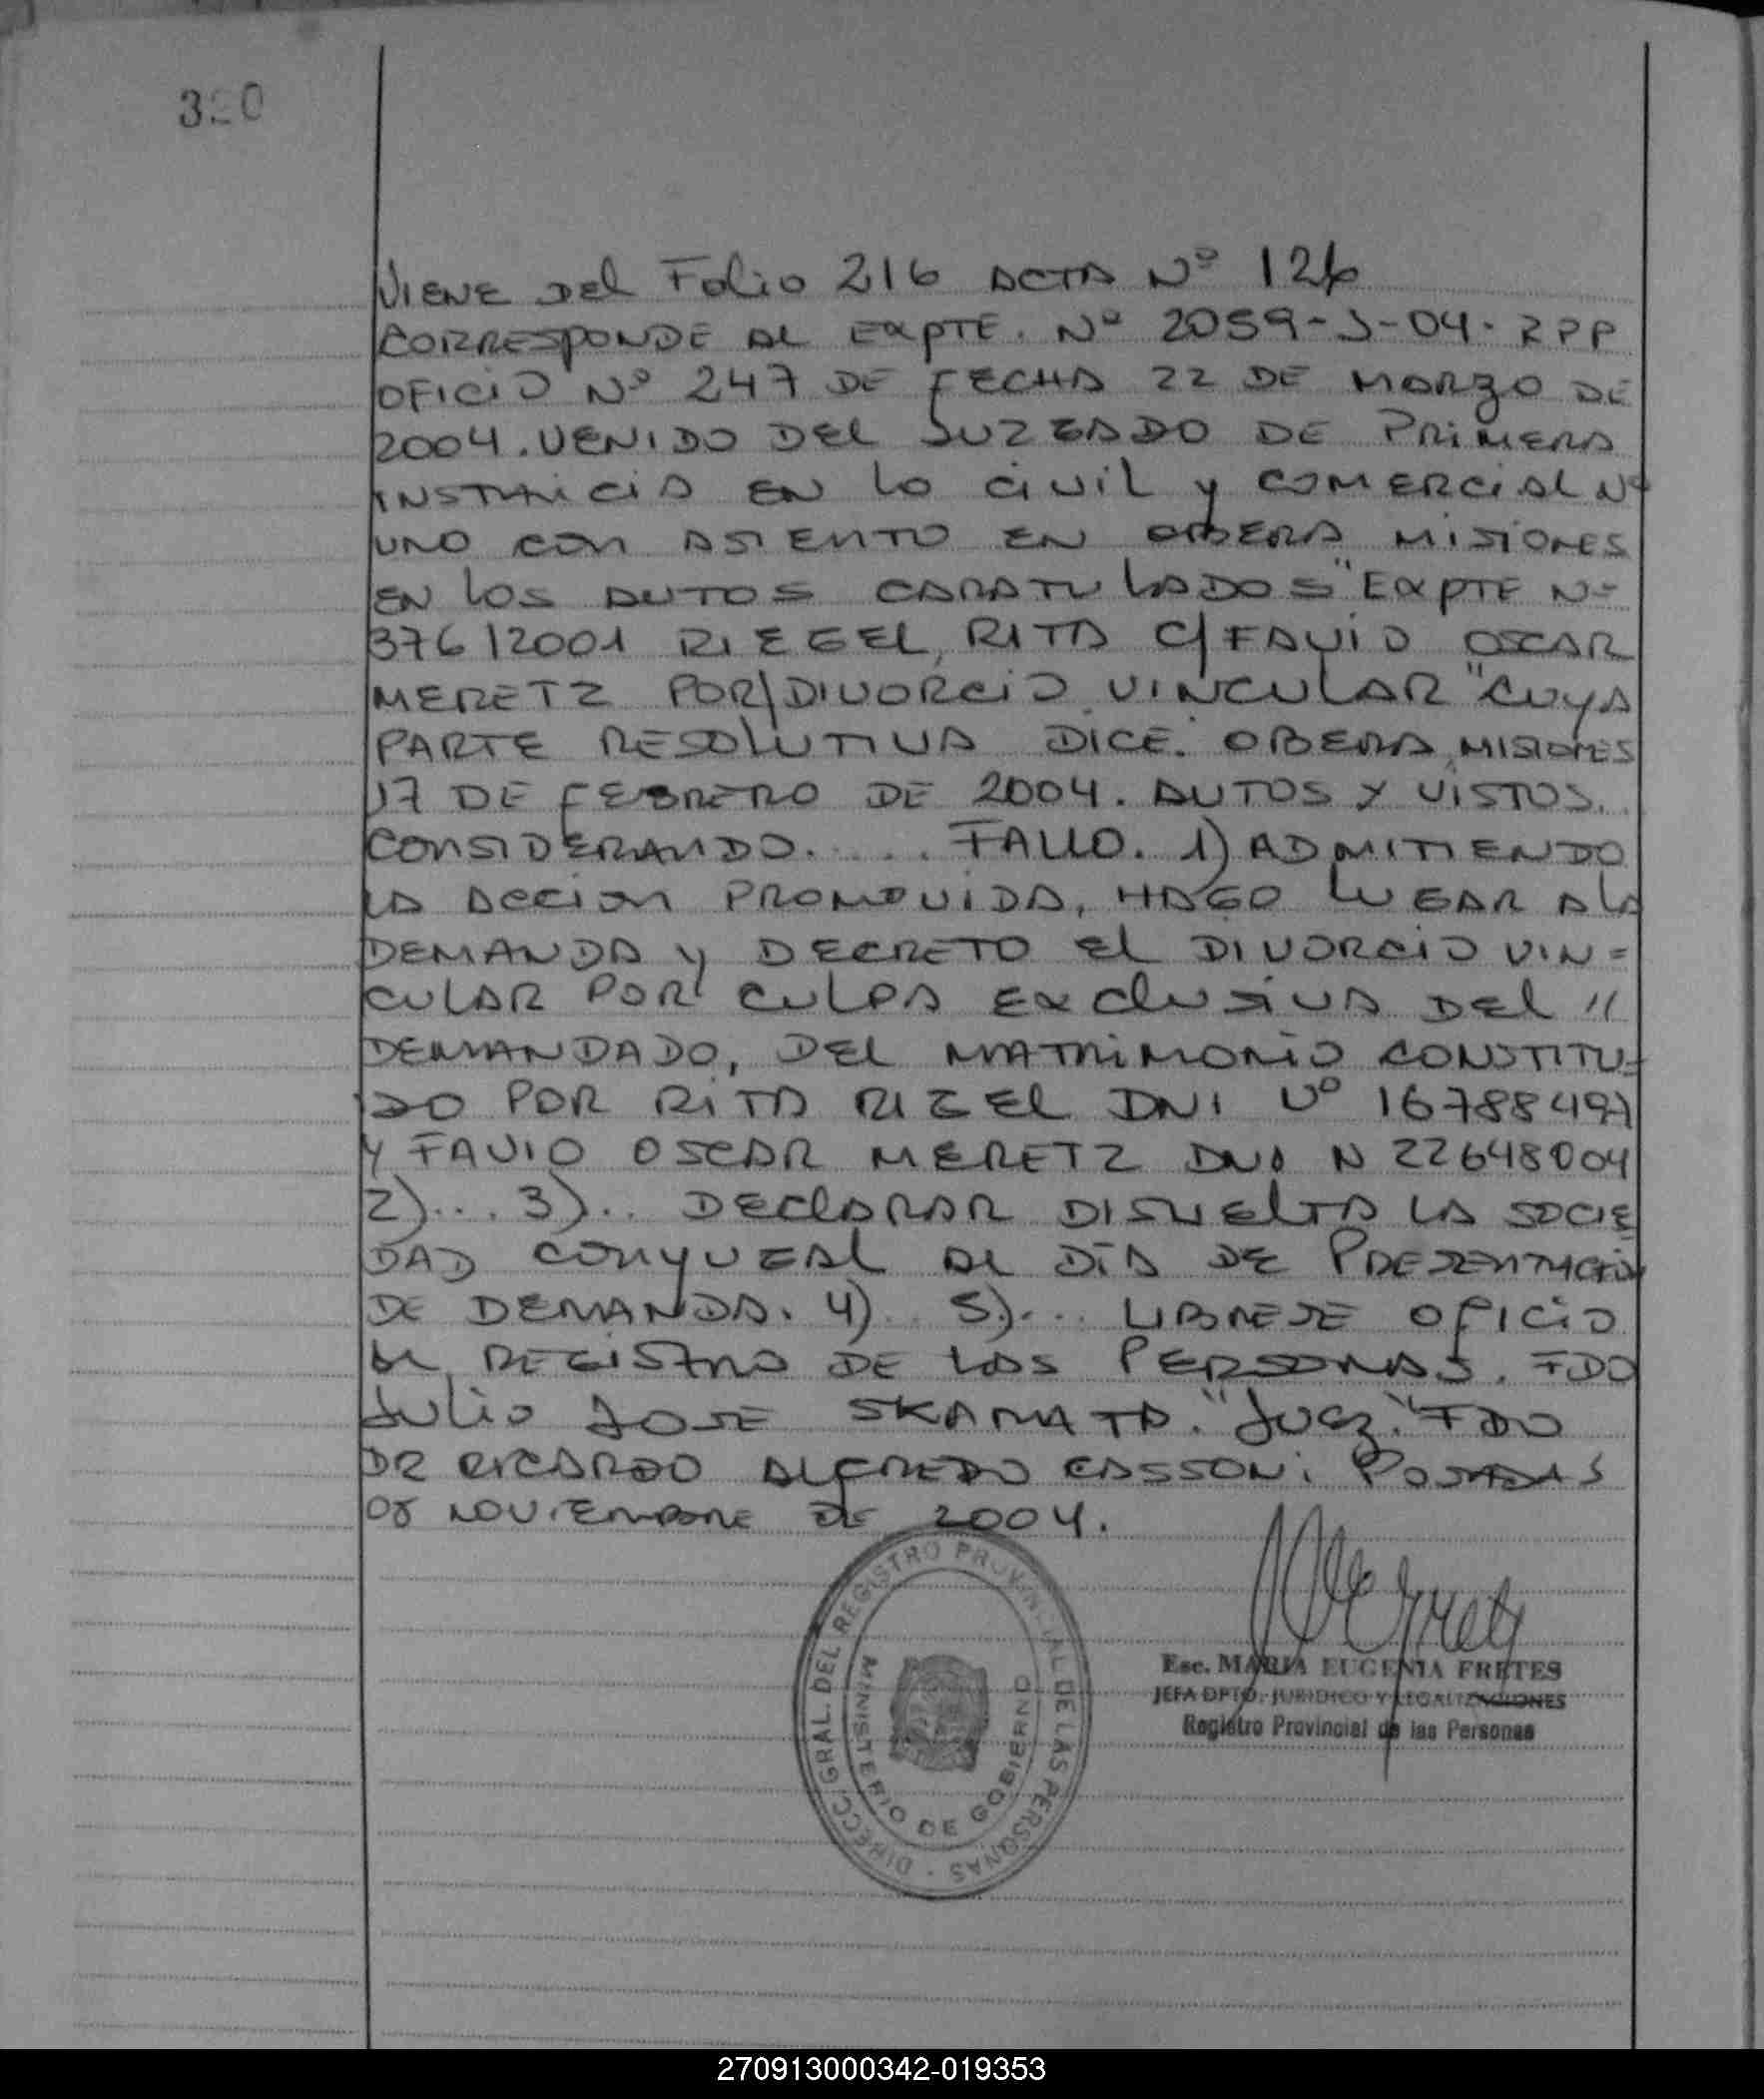 VIENE DEL FOLIO 216 ACTA Nº 126
CORRESPONDE AL EXPTE. Nº 2059-J-04. RPP
OFICIO Nº 247 DE FECHA 22 DE MARZO DE
2004. VENIDO DEL JUZGADO DE PRIMERA
INSTANCIA EN LO CIVIL Y COMERCIAL Nº
UNO CON ASIENTO EN OBERA MISIONES
EN LOS AUTOS CARATULADOS "EXPTE Nº
376/2001 RIEGEL, RITA C/FAVIO OSCAR
MERETZ POR/DIVORCIO VINCULAR" CUYA
PARTE RESOLUTIVA DICE: OBERA, MISIONES
17 DE FEBRERO DE 2004. AUTOS Y VISTOS..
CONSIDERANDO..... FALLO. 1) ADMITIENDO
LA ACCION PROMOVIDA, HAGO LUGAR A LA
DEMANDA Y DECRETO EL DIVORCIO VIN=
CULAR POR CULPA EXCLUSIVA DEL //
DEMANDADO, DEL MATRIMONIO CONSTITU=
IDO POR RITA RIGEL DNI Nº 16788497
Y FAVIO OSCAR MERETZ DNI N 22648004
2)... 3)... DECLARAR DISUELTA LA SOCIE
DAD CONYUGAL AL DÍA DE PRESENTACIÓN
DE DEMANDA. 4).. 5)... LIBRESE OFICIO
AL REGISTRO DE LAS PERSONAS. FDO
JULIO JOSE SKAMATA. "JUEZ". FDO
DR RICARDO ALFREDO CASSONI. POSADAS
08 NOVIEMBRE DE 2004.
DIRECC. GRAL. DEL REGISTRO PROVINCIAL DE LAS PERSONAS -
MINISTERIO DE GOBIERNO
Esc. MARIA EUGENIA FRETES
JEFA DPTO. JURIDICO Y LEGALIZACIONES
Registro Provincial de las Personas
270913000342-019353